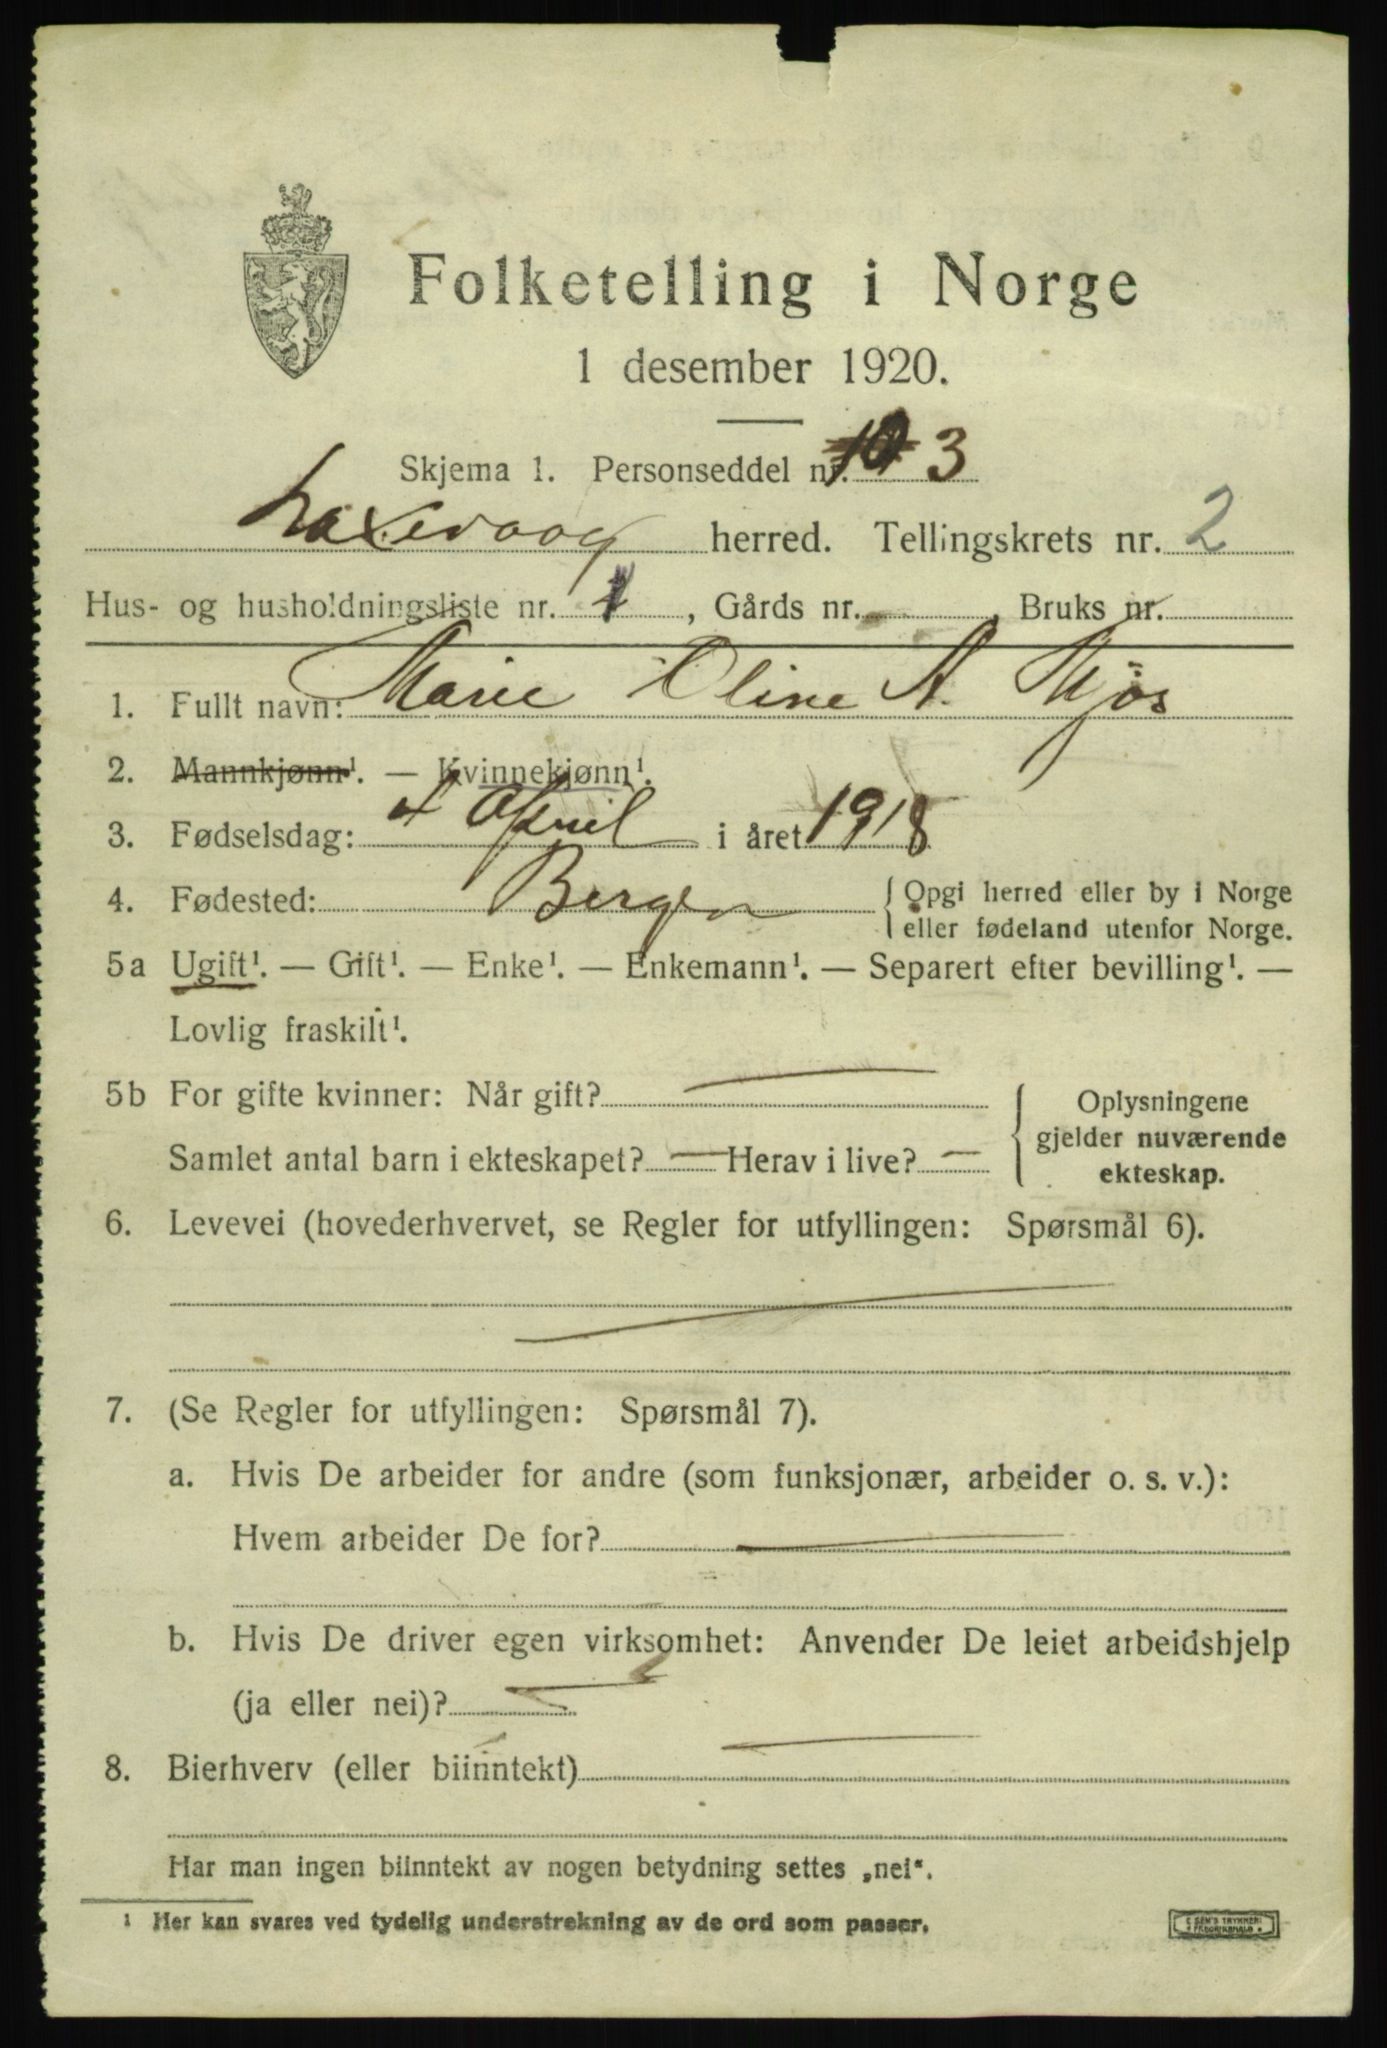 Folketelling i Norge
1 desember 1920.
Skjema 1. Personseddel nr. 3
Laxevaag herred. Tellingskrets nr. 2
Hus- og husholdningsliste nr. 1, Gårds nr. , Bruks nr.
1. Fullt navn: Marie Oline A. Mjøs
2. Mannkjønn¹. — Kvinnekjønn¹.
3. Fødselsdag: 4 April i året 1918
4. Fødested: Bergen { Opgi herred eller by i Norge
eller fødeland utenfor Norge.
5a Ugift¹. — Gift¹. — Enke¹. — Enkemann¹. — Separert efter bevilling¹. —
Lovlig fraskilt¹.
5b For gifte kvinner: Når gift? — { Oplysningene
gjelder nuværende
ekteskap.
Samlet antal barn i ekteskapet? — Herav i live? —
6. Levevei (hovederhvervet, se Regler for utfyllingen: Spørsmål 6).
—
7. (Se Regler for utfyllingen: Spørsmål 7).
a. Hvis De arbeider for andre (som funksjonær, arbeider o. s. v.):
Hvem arbeider De for? —
b. Hvis De driver egen virksomhet: Anvender De leiet arbeidshjelp
(ja eller nei)? —
8. Bierhverv (eller biinntekt) —
Har man ingen biinntekt av nogen betydning settes „nei“.
¹ Her kan svares ved tydelig understrekning av de ord som passer.